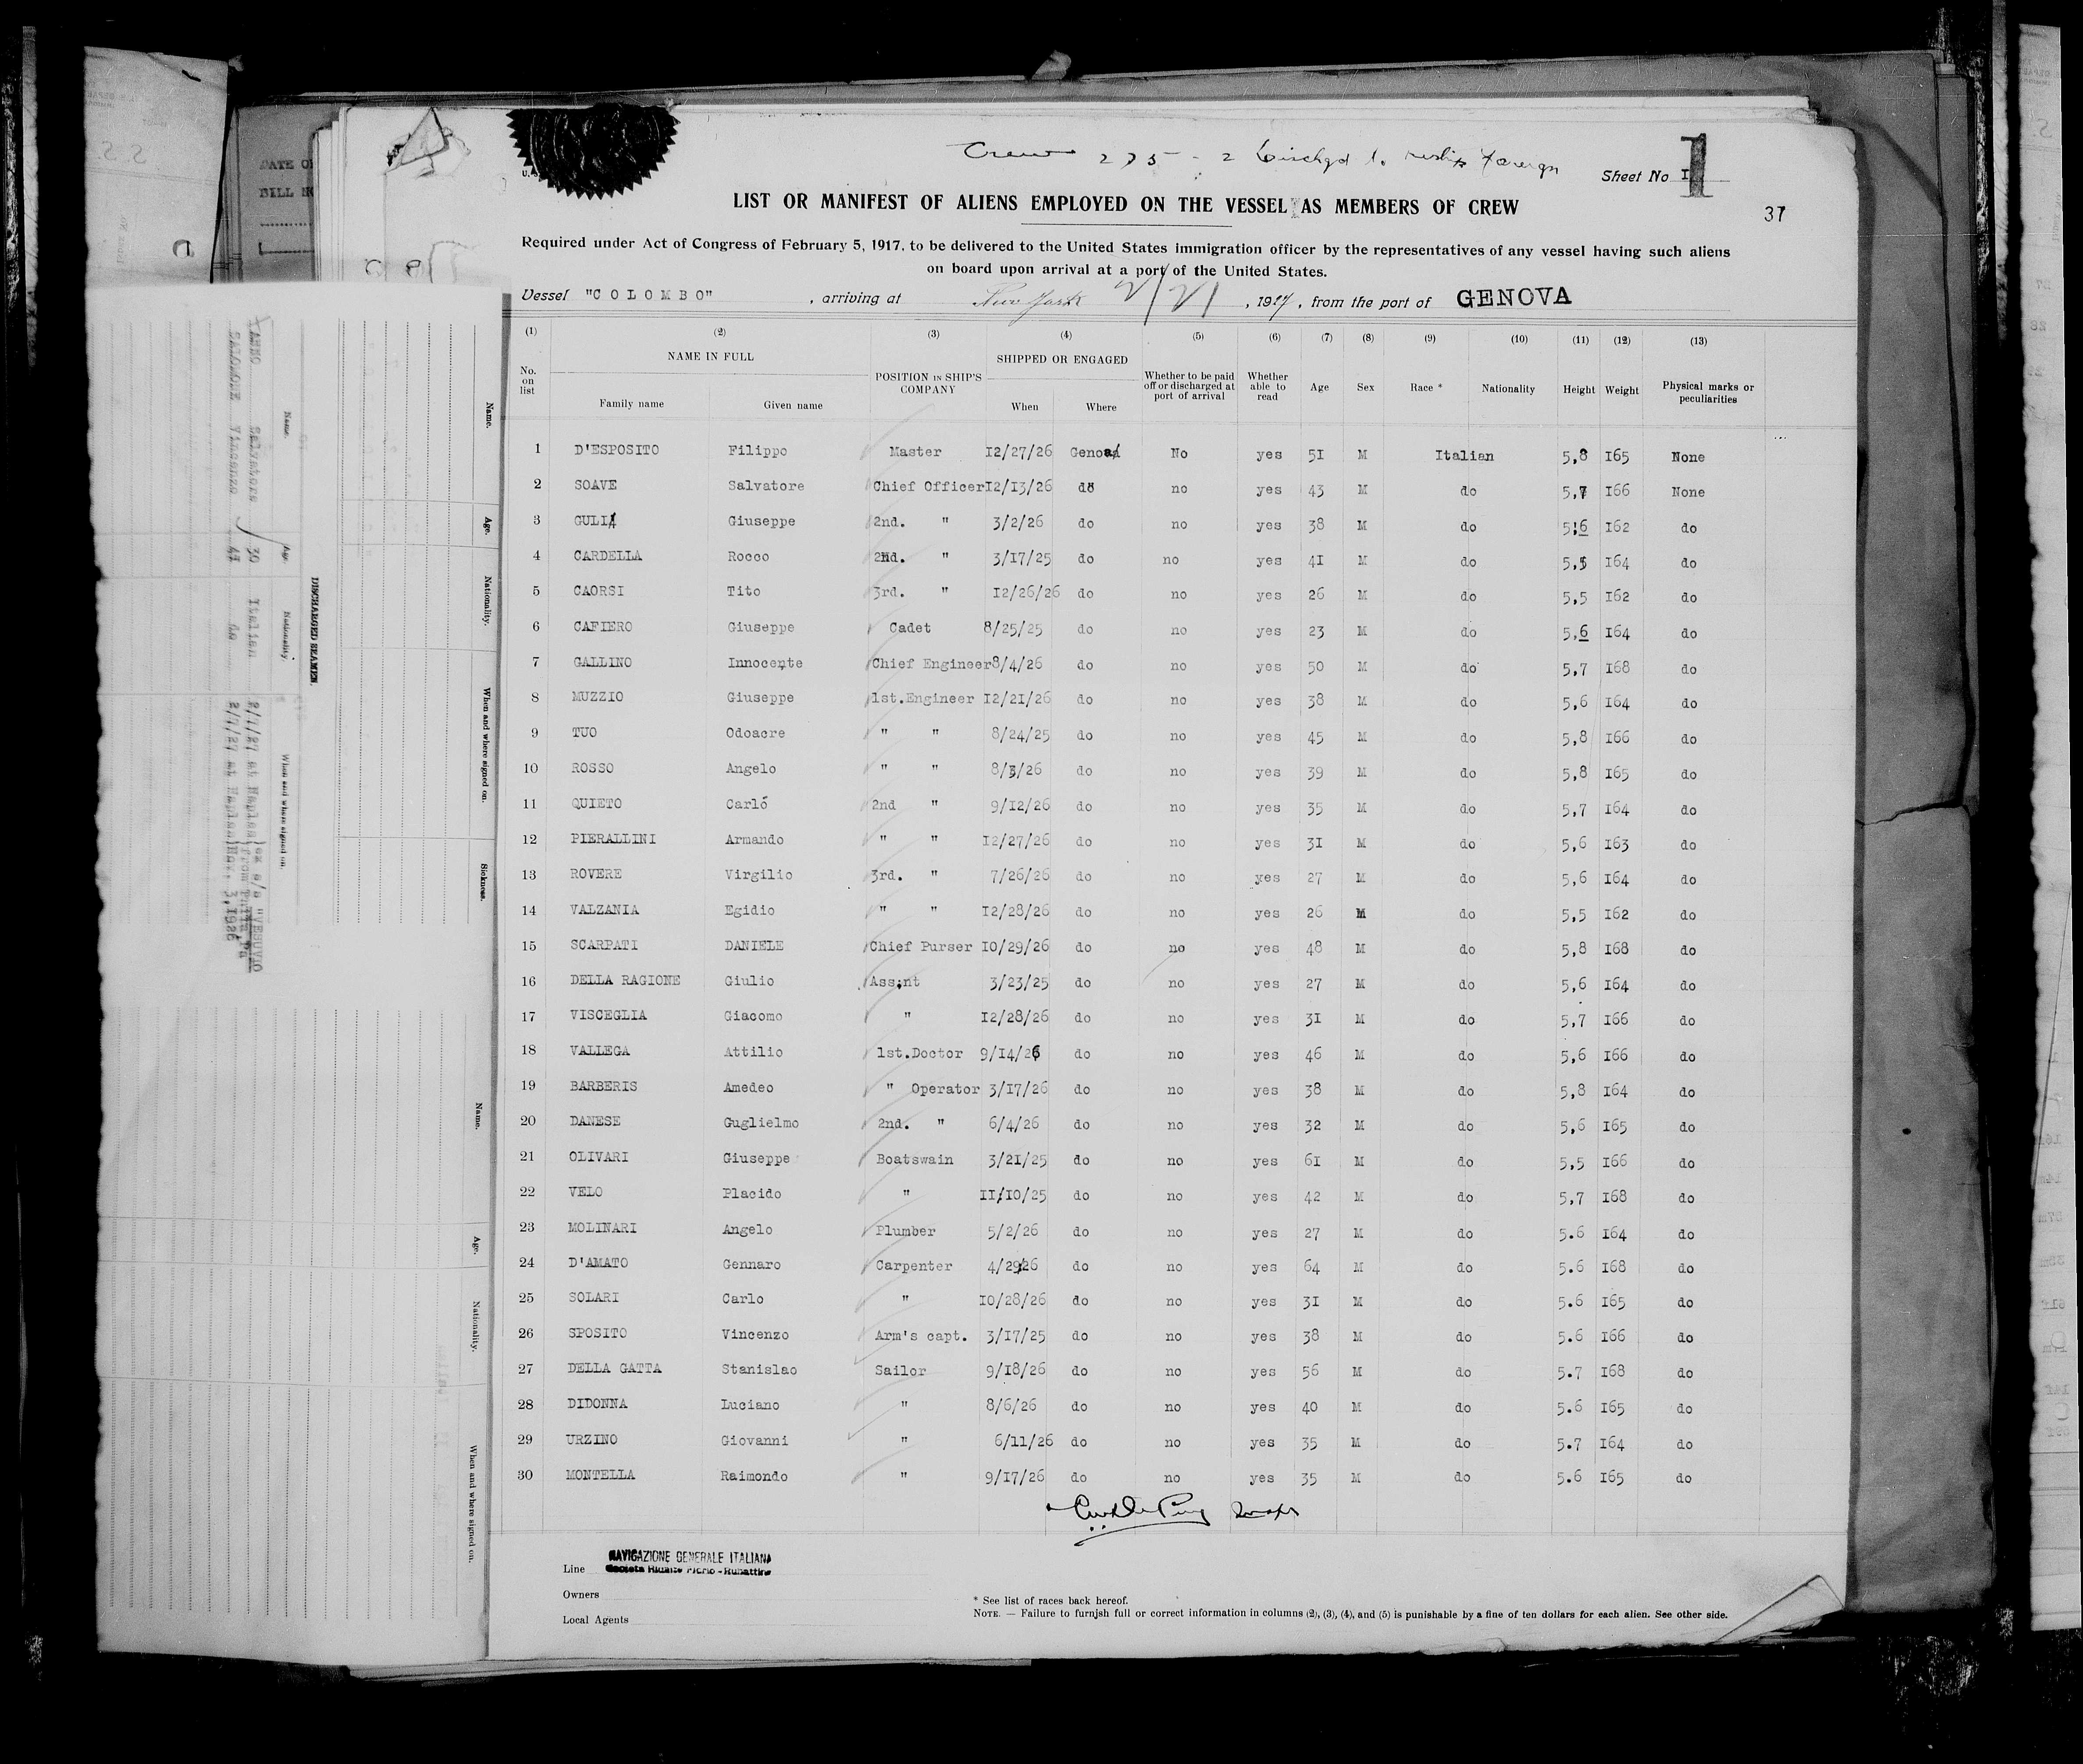 Crew 275 - 2
Sheet No I 1
LIST OR MANIFEST OF ALIENS EMPLOYED ON THE VESSEL AS MEMBERS OF CREW
37
Required under Act of Congress of February 5, 1917, to be delivered to the United States immigration officer by the representatives of any vessel having such aliens
on board upon arrival at a port of the United States.
Vessel "COLOMBO" , arriving at New York 2/21 , 1927, from the port of GENOVA
(1) (2) (3) (4) (5) (6) (7) (8) (9) (10) (11) (12) (13)
No. on list NAME IN FULL Family name Given name POSITION IN SHIP'S COMPANY SHIPPED OR ENGAGED When Where Whether to be paid off or discharged at port of arrival Whether able to read Age Sex Race * Nationality Height Weight Physical marks or peculiarities
1 D'ESPOSITO Filippo Master 12/27/26 Genoa No yes 51 M Italian 5,8 165 None
2 SOAVE Salvatore Chief Officer 12/13/26 do no yes 43 M do 5,7 166 None
3 GULIA Giuseppe 2nd. " 3/2/26 do no yes 38 M do 5,6 162 do
4 CARDELLA Rocco 2nd. " 3/17/25 do no yes 41 M do 5,5 164 do
5 CAORSI Tito 3rd. " 12/26/26 do no yes 26 M do 5,5 162 do
6 CAFIERO Giuseppe Cadet 8/25/25 do no yes 23 M do 5,6 164 do
7 GALLINO Innocente Chief Engineer 8/4/26 do no yes 50 M do 5,7 168 do
8 MUZZIO Giuseppe 1st.Engineer 12/21/26 do no yes 38 M do 5,6 164 do
9 TUO Odoacre " " 8/24/25 do no yes 45 M do 5,8 166 do
10 ROSSO Angelo " " 8/3/26 do no yes 39 M do 5,8 165 do
11 QUIETO Carló 2nd " 9/12/26 do no yes 35 M do 5,7 164 do
12 PIERALLINI Armando " " 12/27/26 do no yes 31 M do 5,6 163 do
13 ROVERE Virgilio 3rd. " 7/26/26 do no yes 27 M do 5,6 164 do
14 VALZANIA Egidio " " 12/28/26 do no yes 26 M do 5,5 162 do
15 SCARPATI DANIELE Chief Purser 10/29/26 do no yes 48 M do 5,8 168 do
16 DELLA RAGIONE Giulio Ass;nt 3/23/25 do no yes 27 M do 5,6 164 do
17 VISCEGLIA Giacomo " 12/28/26 do no yes 31 M do 5,7 166 do
18 VALLEGA Attilio 1st.Doctor 9/14/26 do no yes 46 M do 5,6 166 do
19 BARBERIS Amedeo " Operator 3/17/26 do no yes 38 M do 5,8 164 do
20 DANESE Guglielmo 2nd. " 6/4/26 do no yes 32 M do 5,6 165 do
21 OLIVARI Giuseppe Boatswain 3/21/25 do no yes 61 M do 5,5 166 do
22 VELO Placido " 11/10/25 do no yes 42 M do 5,7 168 do
23 MOLINARI Angelo Plumber 5/2/26 do no yes 27 M do 5.6 164 do
24 D'AMATO Gennaro Carpenter 4/29/26 do no yes 64 M do 5.6 168 do
25 SOLARI Carlo " 10/28/26 do no yes 31 M do 5.6 165 do
26 SPOSITO Vincenzo Arm's capt. 3/17/25 do no yes 38 M do 5.6 166 do
27 DELLA GATTA Stanislao Sailor 9/18/26 do no yes 56 M do 5.7 168 do
28 DIDONNA Luciano " 8/6/26 do no yes 40 M do 5.6 165 do
29 URZINO Giovanni " 6/11/26 do no yes 35 M do 5.7 164 do
30 MONTELLA Raimondo " 9/17/26 do no yes 35 M do 5.6 165 do
Line NAVIGAZIONE GENERALE ITALIANA
Owners
Local Agents
* See list of races back hereof.
NOTE. — Failure to furnish full or correct information in columns (2), (3), (4), and (5) is punishable by a fine of ten dollars for each alien. See other side.
DISCHARGED SEAMEN.
Name. Age. Nationality. When and where signed on.
Salvatore 30 Italian 2/7/27 at Naples ex s/s "VESUVIO
SALOMONE Vincenzo 47 do 2/7/27 at Naples Nov. 3,1926
Name. Age. Nationality. When and where signed on. Sickness.
Name. Age. Nationality. When and where signed on.